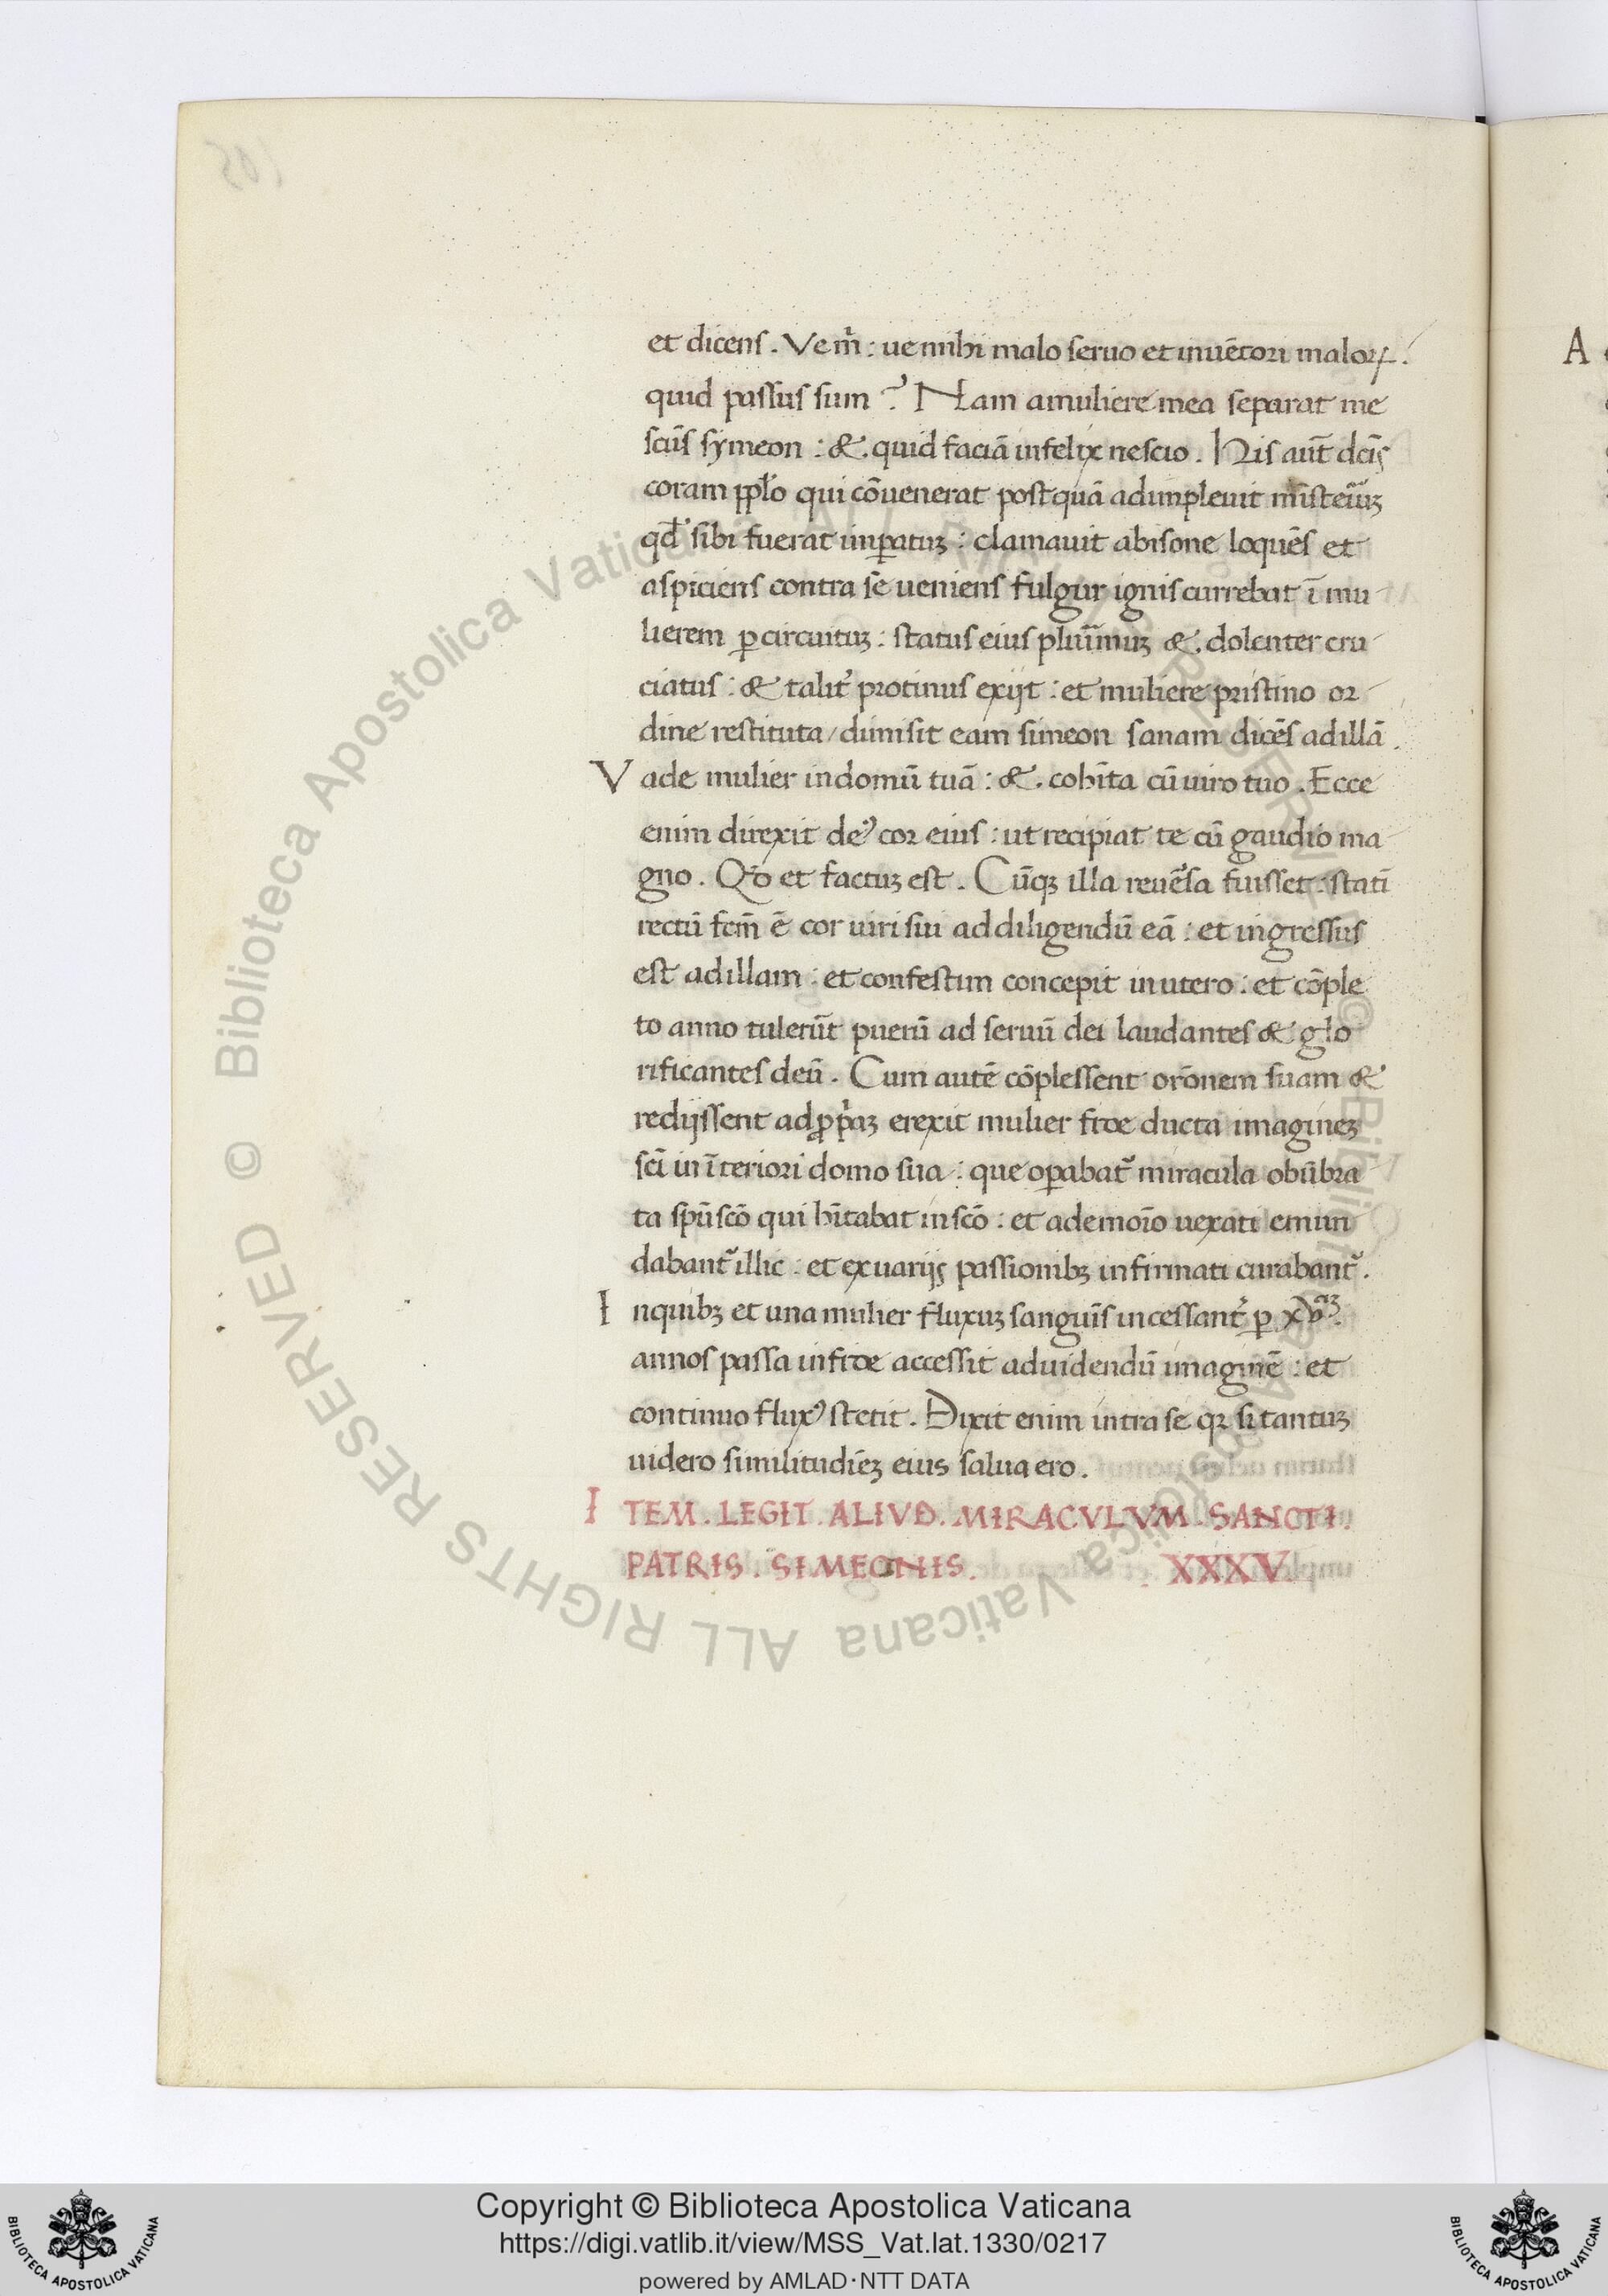 et dicens. Ve m̃: ue mihi malo seruo et inuētori maloꝝ.
quid passus sum? Nam a muliere mea separat me
scūs symeon: &. quid faciā infelix nescio. His aūt dcīs
coram pplo qui cōuenerat postquā adimpleuit
qđ sibi fuerat imꝑatuꝫ: clamauit ab isone loquēs et
aspiciens contra se ueniens fulgur ignis currebat ī mu
lierem ꝑ circuituꝫ: status eius plurīmuꝫ &. dolenter cru
ciatus: & talit̉ protinus exijt: et muliere pristino or
dine restituta/dimisit eam simeon sanam dicēs ad illā.
Vade mulier in domū tuā: &. cohīta cū uiro tuo. Ecce
enim direxit deꝰ cor eius: ut recipiat te cū gaudio ma
gno. Qđ et factuꝫ est. Cūqꝫ illa reuēsa fuisset: statī
rectū fcm̄ ē cor uiri sui ad diligendū eā: et ingressus
est ad illam: et confestim concepit in utero: et cōple
to anno tulerūt puerū ad seruū dei laudantes & glo
rificantes deū. Cum autē cōplessent orōnem suam &
redijssent ad ꝓpͥaꝫ erexit mulier fide ducta imagineꝫ
scī in īteriori domo sua: que oꝑabat̃ miracula obūbra
ta spū scō qui hītabat in scō: et a demoīo uexati emun
dabant̃ illic: et ex uarijs passionibꝫ infirmati curabant̃.
In quibꝫ et una mulier fluxuꝫ sanguīs incessant̉ ꝑ xv
annos passa in fide accessit ad uidendū imaginē: et
continuo fluxꝰ stetit. Dixit enim intra se qꝛ si tantuꝫ
uidero similitudīeꝫ eius salua ero.
ITEM. LEGIT. ALIVD. MIRACVLVM. SANCTI.
PATRIS. SIMEONIS. XXXV.
A
© Biblioteca Apostolica Vaticana ALL RIGHTS RESERVED
Copyright © Biblioteca Apostolica Vaticana
https://digi.vatlib.it/view/MSS_Vat.lat.1330/0217
powered by AMLAD·NTT DATA
BIBLIOTECA APOSTOLICA VATICANA
BIBLIOTECA APOSTOLICA VATICANA